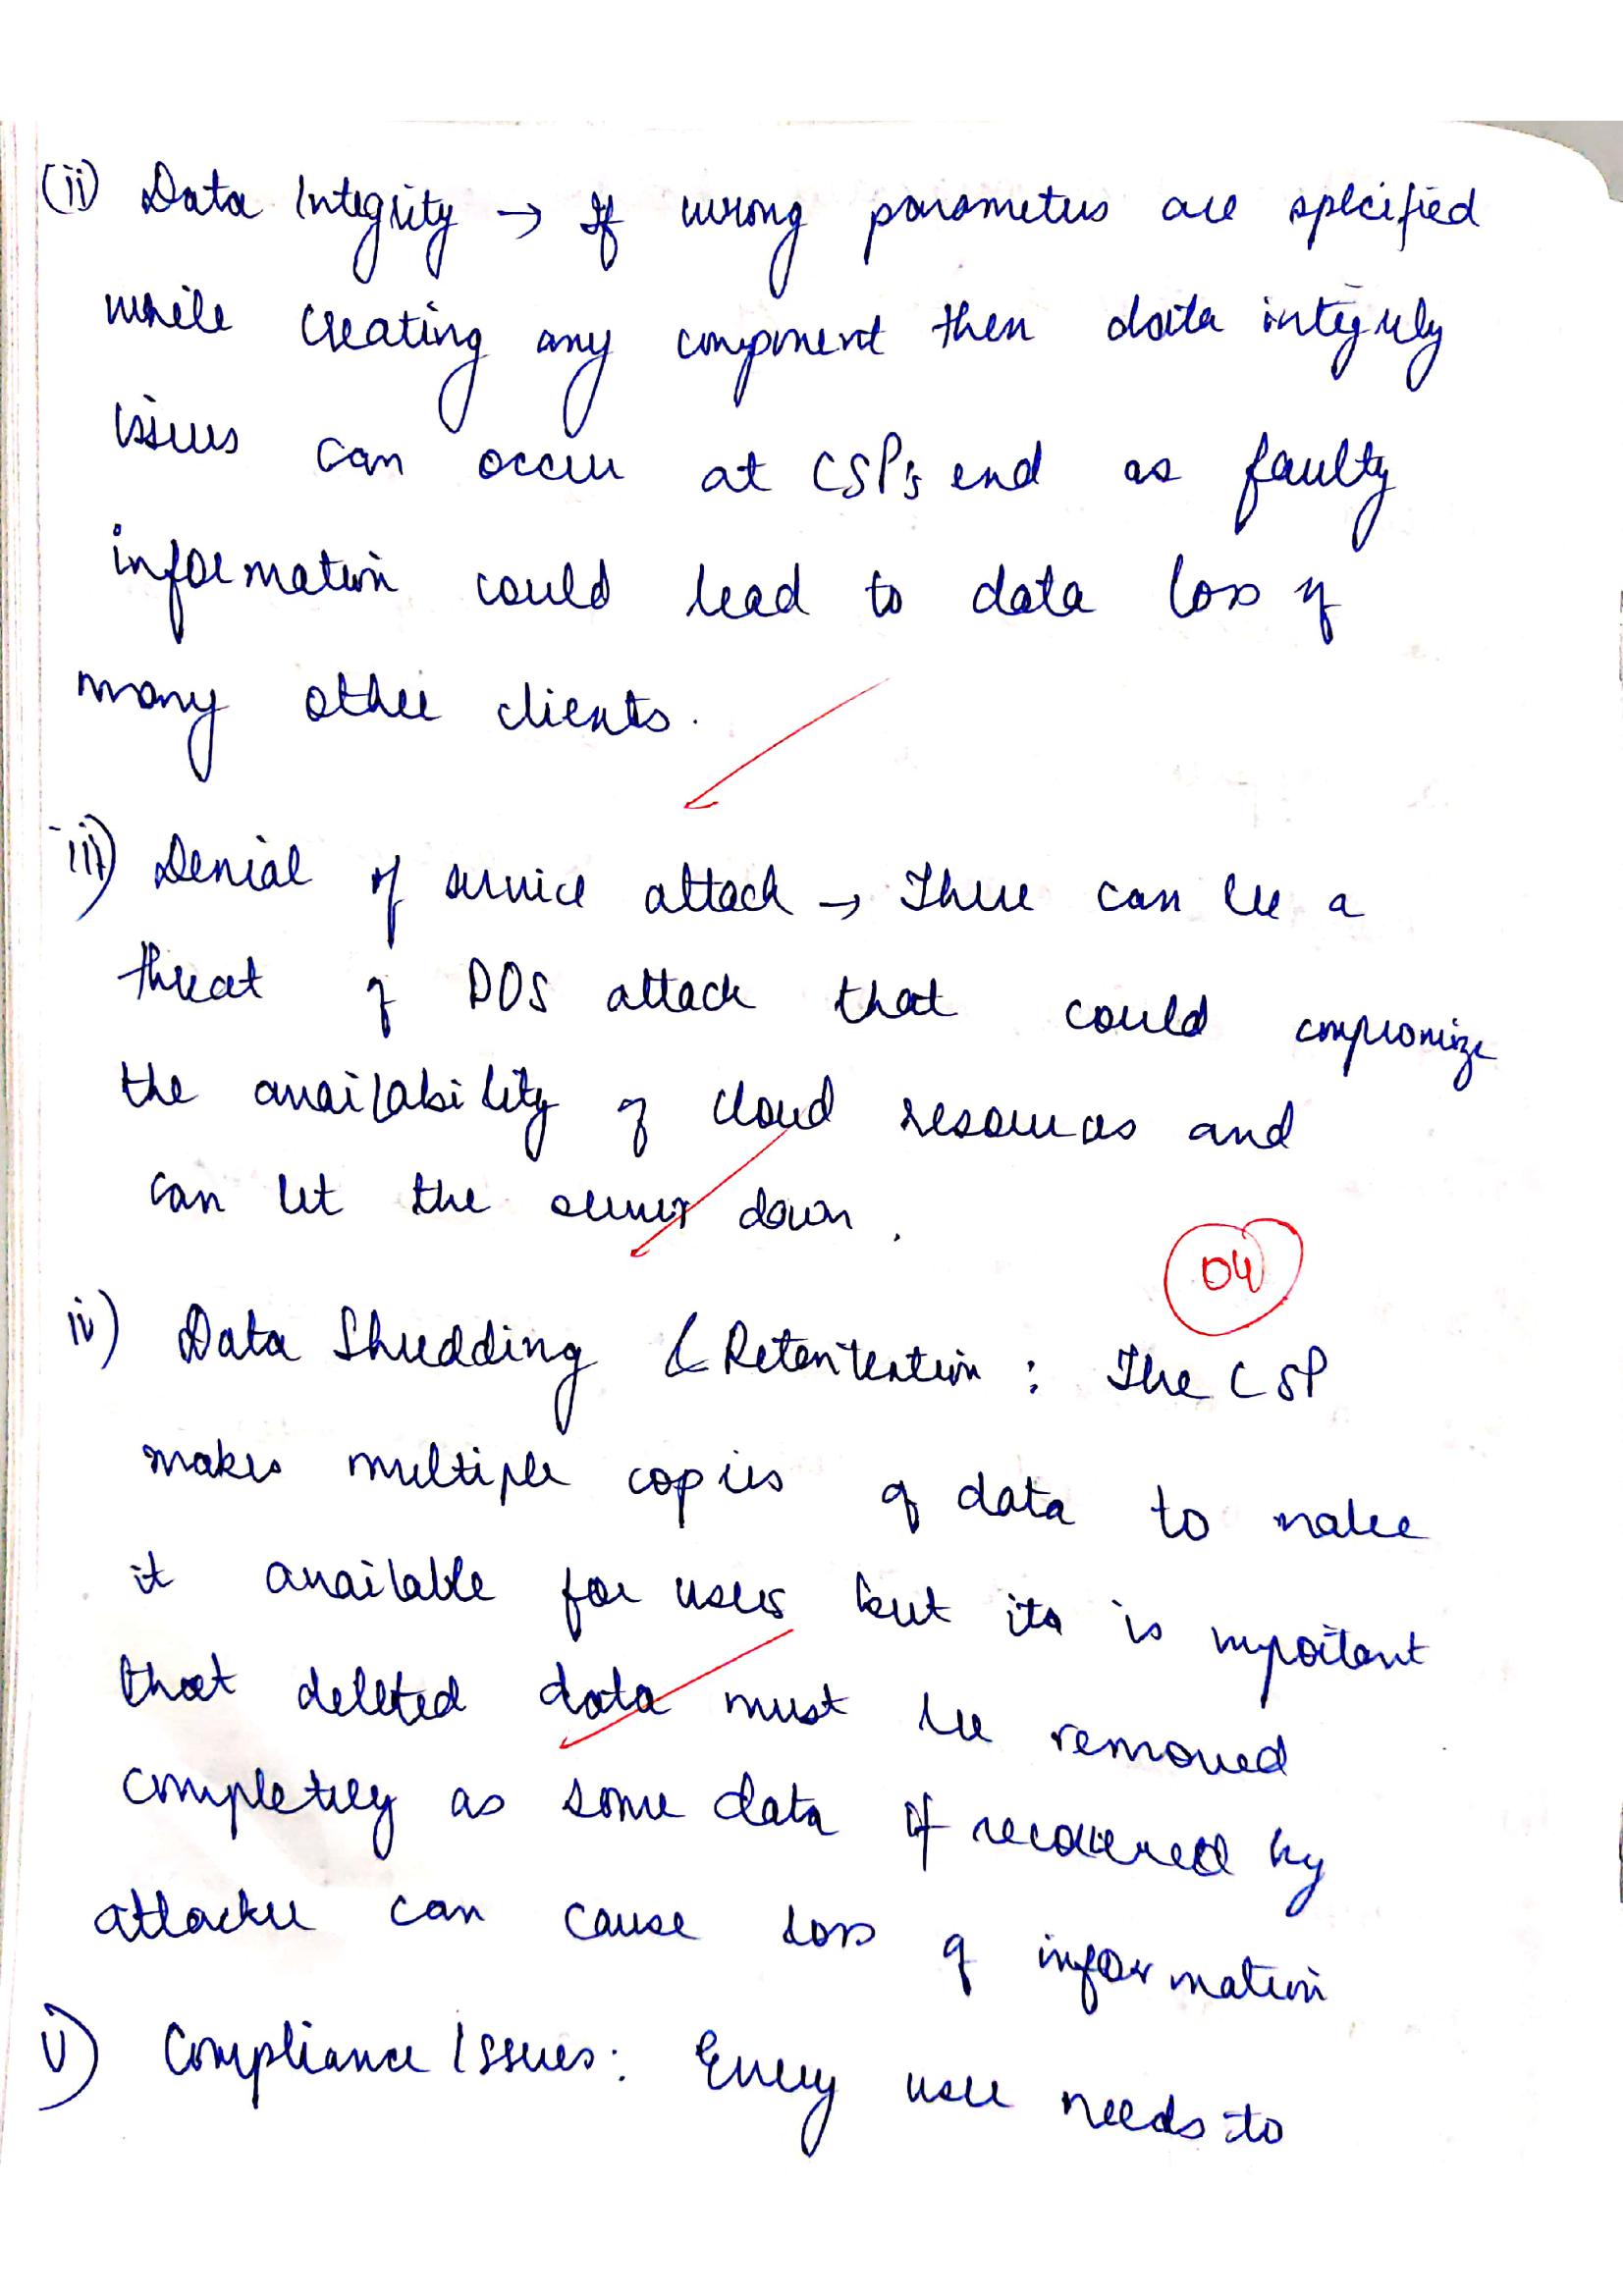 (ii) Data Integrity → If wrong parameters are specified
while creating any component then data integrity
issues can occur at CSP's end as faulty
information could lead to data loss of
many other clients.
iii) Denial of service attack → There can be a
threat of DOS attack that could compromize
the availability of cloud resources and
can let the server down.
04
iv) Data Shredding & Retentention : The CSP
makes multiple copies of data to make
it available for users but its is important
that deleted data must be removed
completely as some data if recovered by
attacker can cause loss of information
v) Compliance Issues: Every user needs to